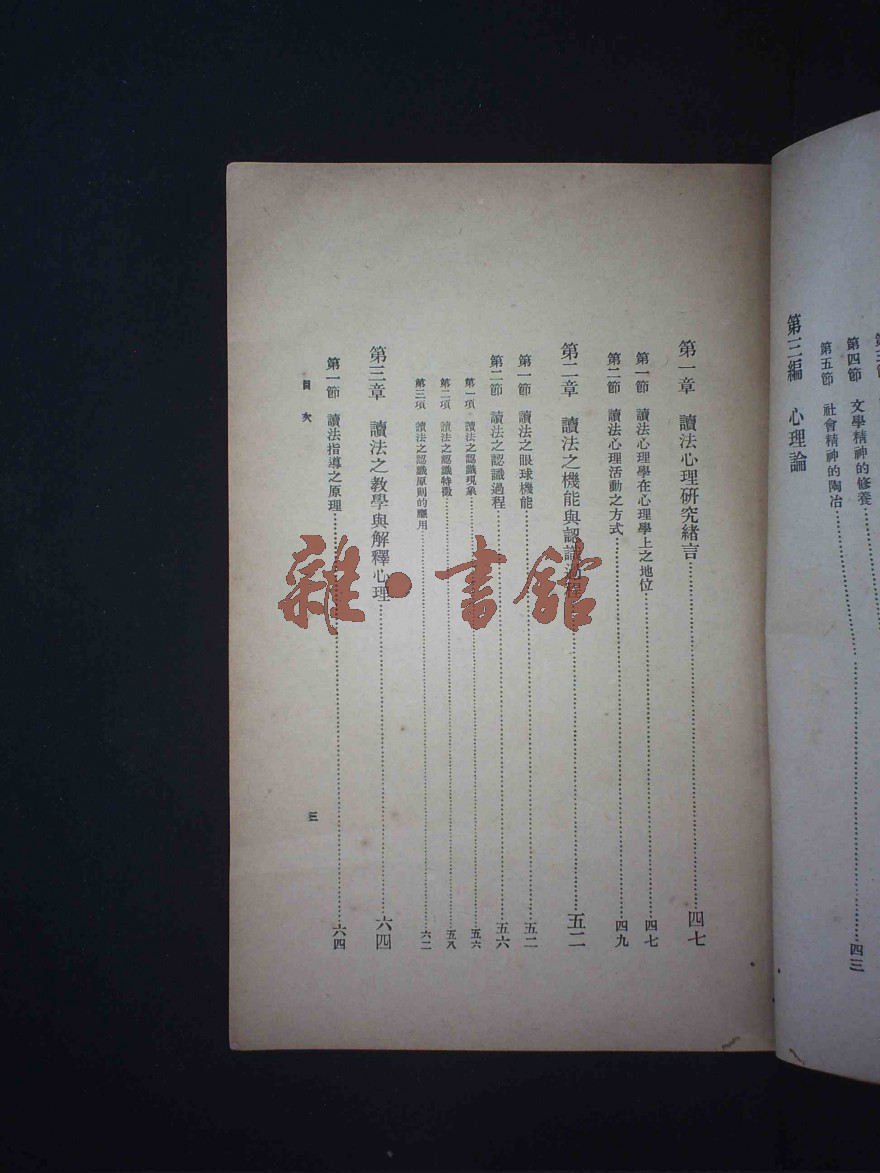 第四節　文學精神的修養
第五節　社會精神的陶冶……四三
第三編　心理論
第一章　讀法心理硏究緒言……四七
第一節　讀法心理學在心理學上之地位……四七
第二節　讀法心理活動之方式……四九
第二章　讀法之機能與認識過程……五二
第一節　讀法之眼球機能……五二
第二節　讀法之認識過程……五六
第一項　讀法之認識現象……五六
第二項　讀法之認識特徵……五八
第三項　讀法之認識原則的應用……六二
第三章　讀法之敎學與解釋心理……六四
第一節　讀法指導之原理……六四
目次
三
雜·書館